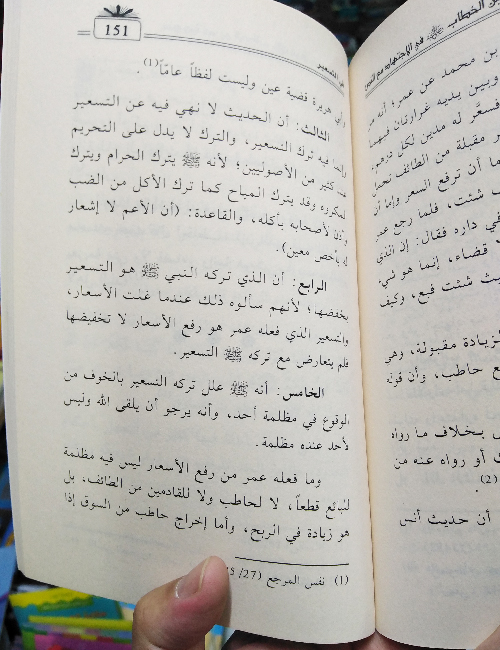 151
عن التسعير
وأبي هريرة قضية عين وليست لفظاً عامّاً(1).
الثالث: أن الحديث لا نهي فيه عن التسعير
وإنما فيه ترك التسعير، والترك لا يدل على التحريم
عند كثير من الأصوليين؛ لأنه ﷺ يترك الحرام ويترك
المكروه وقد يترك المباح كما ترك الأكل من الضب
وأذن لأصحابه بأكله، والقاعدة: (أن الأعم لا إشعار
له بأخص معين).
الرابع: أن الذي تركه النبي ﷺ هو التسعير
بخفضها؛ لأنهم سألوه ذلك عندما غلت الأسعار،
والتسعير الذي فعله عمر هو رفع الأسعار لا تخفيضها
فلم يتعارض مع تركه ﷺ التسعير.
الخامس: أنه ﷺ علل تركه التسعير بالخوف من
الوقوع في مظلمة أحد، وأنه يرجو أن يلقى الله وليس
لأحد عنده مظلمة.
وما فعله عمر من رفع الأسعار ليس فيه مظلمة
للبائع قطعاً، لا لحاطب ولا للقادمين من الطائف، بل
هو زيادة في الربح، وأما إخراج حاطب من السوق إذا
(1) نفس المرجع (27/
الخطاب ﷺ في الاجتهاد مع النص
بن محمد عن عمر؛ أنه مر
وبين يديه غرارتان فيهما
فسعَّر له مدين لكل درهم.
مقبلة من الطائف تحمل
ما أن ترفع السعر وإما أن
شئت، فلما رجع عمر
في داره فقال: إن الذي
قضاء، إنما هو شيء
شئت فبع، وكيف
لزيادة مقبولة، وهي
ع حاطب، وأن قوله
بخلاف ما رواه
أو رواه عنه من
(2).
أن حديث أنس